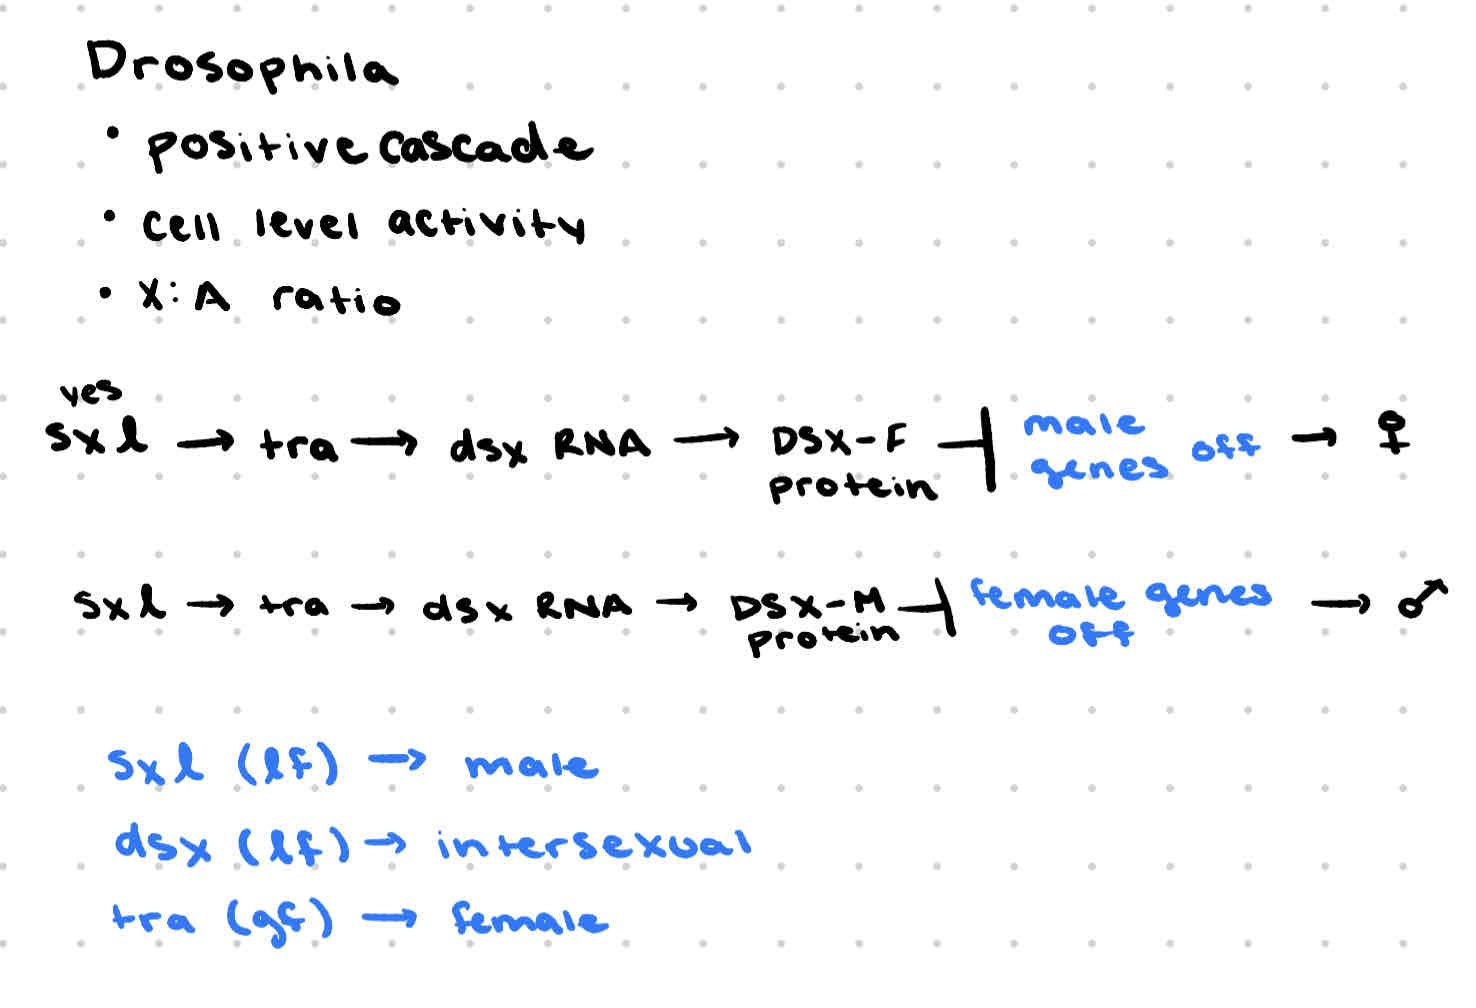 Drosophila
• positive cascade
• cell level activity
• X:A ratio
yes
sxl → tra → dsx RNA → DSX-F protein ⊣ male genes off → ♀
sxl → tra → dsx RNA → DSX-M protein ⊣ female genes off → ♂
sxl (lf) → male
dsx (lf) → intersexual
tra (gf) → female